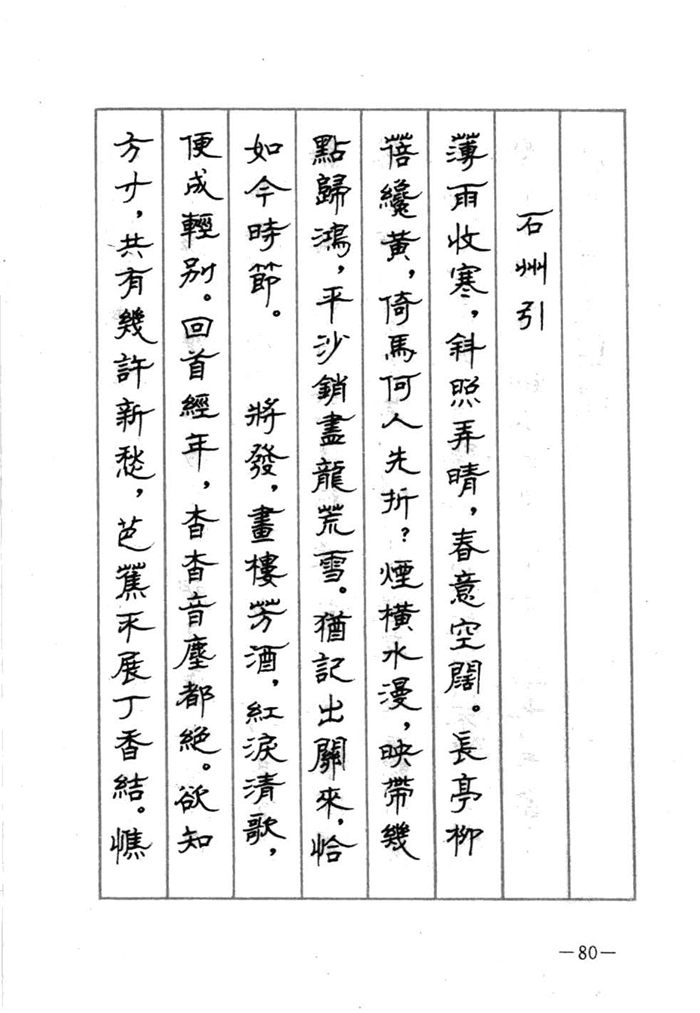 石州引
薄雨收寒，斜照弄晴，春意空闊。長亭柳
蓓纔黃，倚馬何人先折？煙橫水漫，映帶幾
點歸鴻，平沙銷盡龍荒雪。猶記出關來，恰
如今時節。　將發，畫樓芳酒，紅淚清歌，
便成輕別。回首經年，杳杳音塵都絕。欲知
方寸，共有幾許新愁，芭蕉不展丁香結。憔
—80—